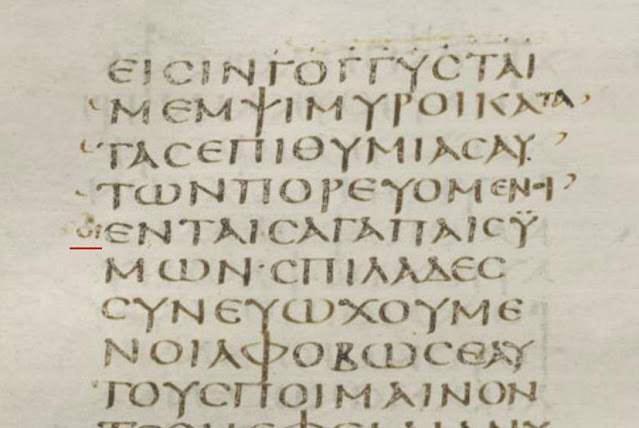 ΕΙϹΙΝΓΟΓΓΥϹΤΑΙ
ΜΕΜΨΙΜΥΡΟΙΚΑΤΑ
ΤΑϹΕΠΙΘΥΜΙΑϹΑΥ
ΤΩΝΠΟΡΕΥΟΜΕΝΟΙ
ΟΙΕΝΤΑΙϹΑΓΑΠΑΙϹΫ
ΜΩΝ·ϹΠΙΛΑΔΕϹ
ϹΥΝΕΥΩΧΟΥΜΕ
ΝΟΙΑΦΟΒΩϹΕΑΥ
ΤΟΥϹΠΟΙΜΑΙΝΟΝ